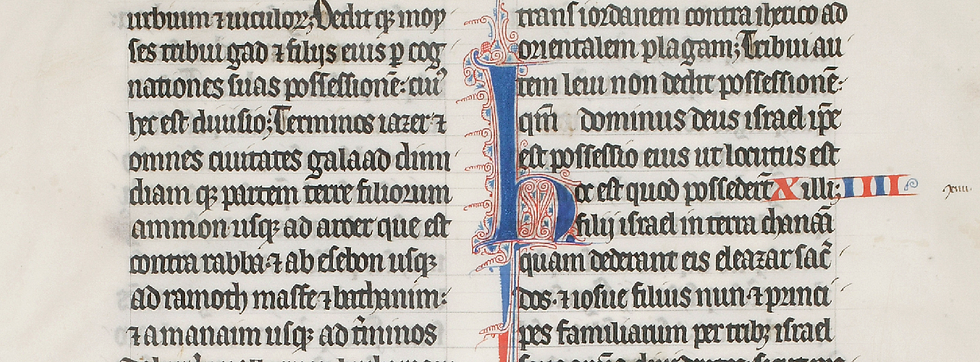 urbium ⁊ uiculoꝝ; Dedit qꝫ moy
ses tribui gad ⁊ filijs eius ꝑ cog
nationes suas possessionē: cuiꝰ
hec est diuisio; Terminos iazer ⁊
omnes ciuitates galaad dimi
diam qꝫ partem terre filiorum
ammon usqꝫ ad aroer que est
contra rabba: ⁊ ab esebon usqꝫ
ad ramoth masfe ⁊ bathanim:
⁊ a manaim usqꝫ ad t̄minos
trans iordanem contra iherico ad
orientalem plagam; Tribui au
tem leui non dedit possessionē:
qm̄ dominus deus israel ip̄e
est possessio eius ut locutus est
hec est quod possedert̄ Xilli; IIII
filii israel in terra chanaā
quam dederunt eis eleazar sac̄
dos· ⁊ iosue filius nun· ⁊ princi
pes familiarum per tribꝫ israel